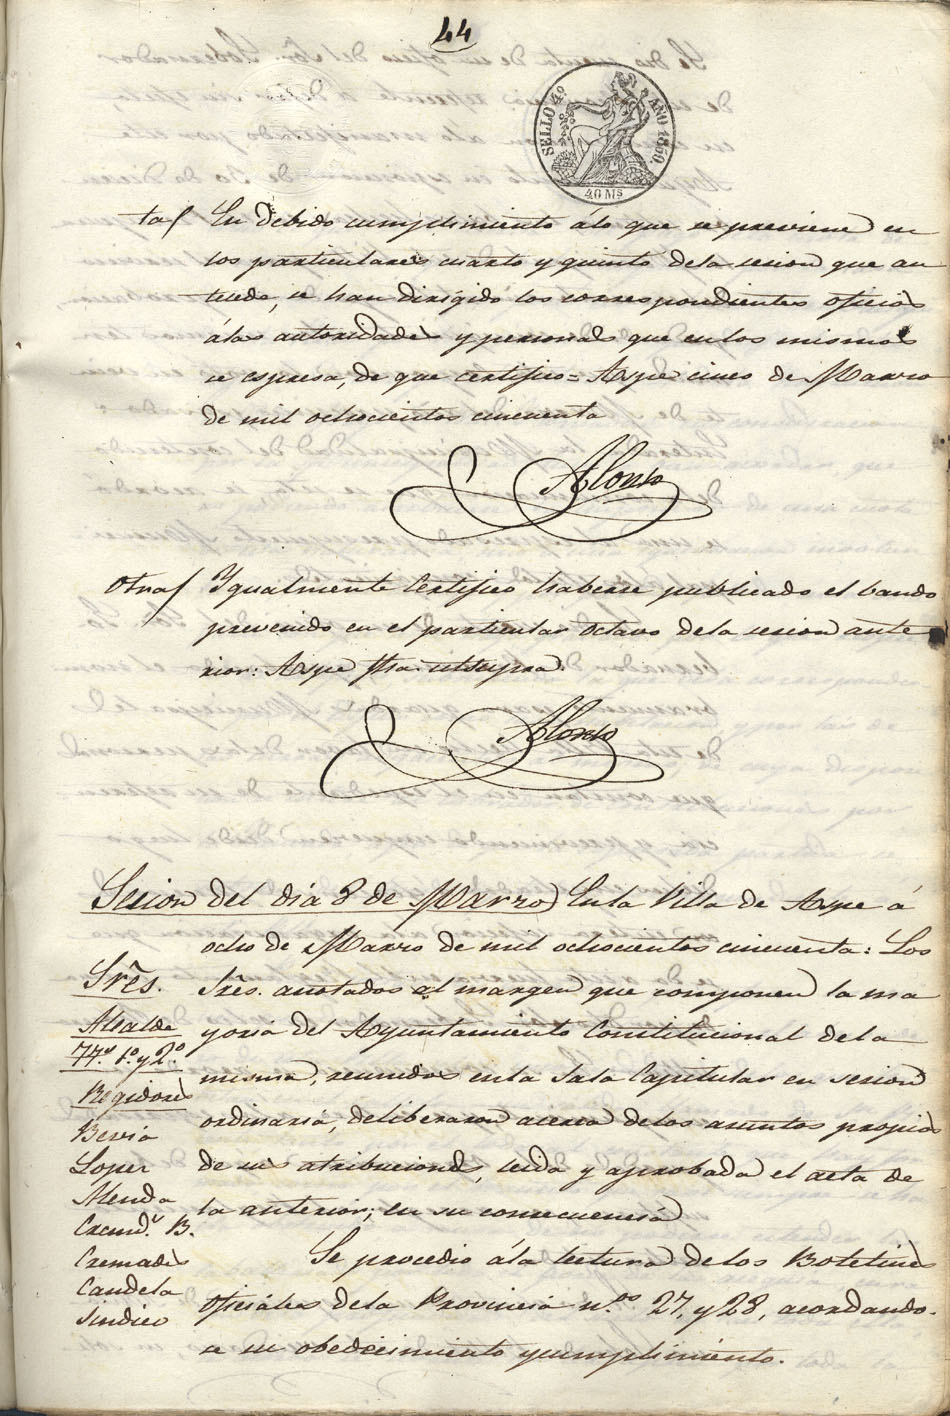 44
SELLO 4º AÑO 1850
40 Ms
ta/ En debido cumplimiento á lo que se previene en
los particulares cuarto y quinto dela sesion que an
tecede, se han dirigido los correspondientes oficios
álas autoridades y personas que enlos mismos
se espresa, de que certifico = Aspe cinco de Marzo
de mil ochocientos cincuenta
Alonso
Otra/ Ygualmente Certifico haberse publicado el bando
prevenido en el particular octavo dela sesion ante
rior: Aspe fha. utsupra.
Alonso
Sesion del dia 8 de Marzo) Enla Villa de Aspe á
ocho de Marzo de mil ochocientos cincuenta: Los
Sres. anotados al margen que componen la ma
yoria del Ayuntamiento Constitucional de la
misma, reunidos enla Sala Capitular en sesion
ordinaria, deliberaron acerca delos asuntos propios
de sus atribuciones, leida y aprobada el acta de
la anterior; en su consecuencia
Se procedio ála lectura delos Boletines
Oficiales dela Provincia n.os 27, y 28, acordando-
se su obedecimiento y cumplimiento.
Sres.
Alcalde
TT.s 1.º y 2.º
Regidores
Bevia
Lopez
Alenda
B.
Cremades
Candela
Sindico